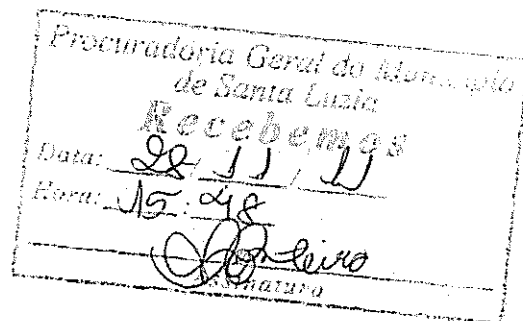 Procuradoria Geral do Município
de Santa Luzia
Recebemos
Data: 28 / 11 / 11
Hora: 15:48
Assinatura